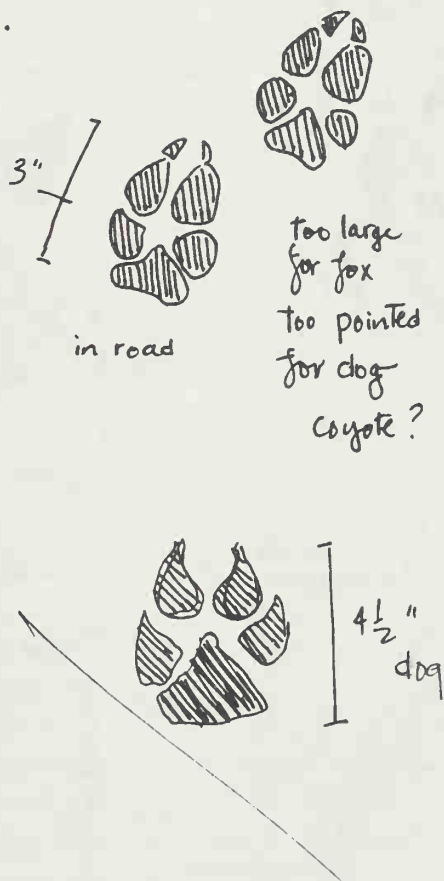 3"
in road
too large
for fox
too pointed
for dog
coyote?
4 1/2"
dog